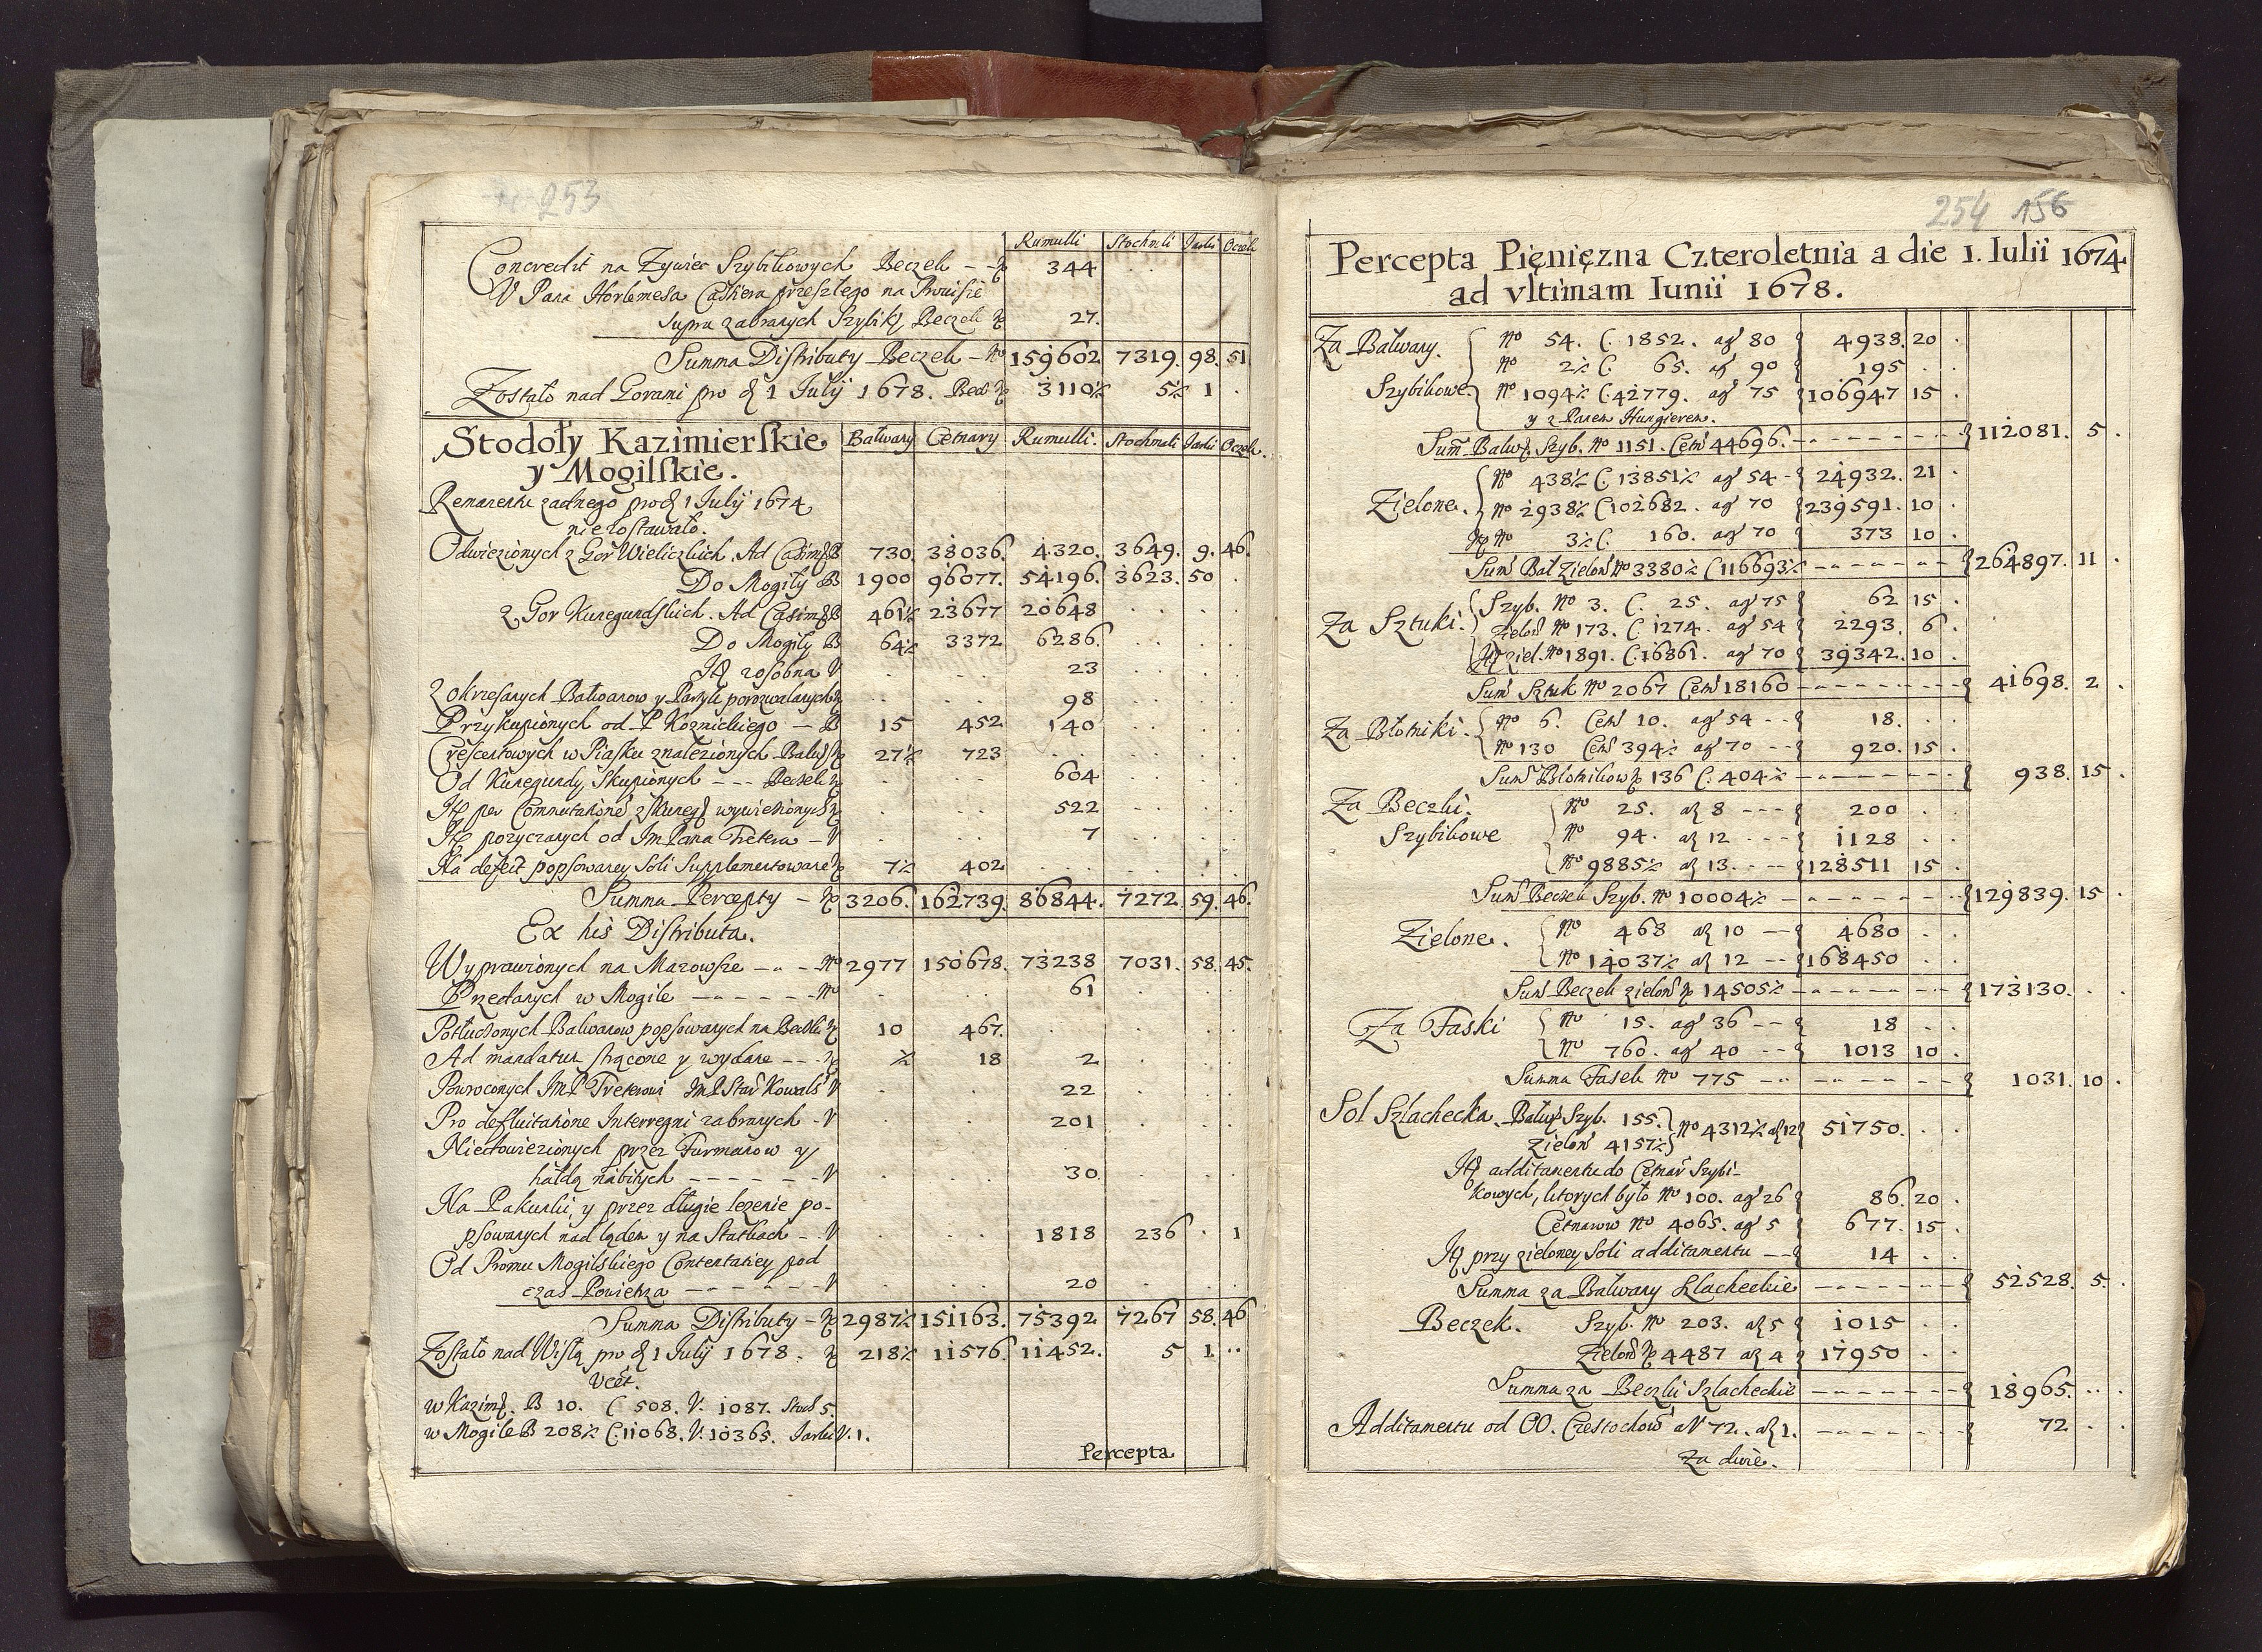 253
Rumulli Stochmli Jarki Oczek
Concredit na Zywiec Szybikowych Beczek 344
V Pana Horlemesa Caskera przeszłego na Prowisie
supra zabranych Szybik, Beczek 27.
Summa Distributy Beczek No 159602 7319. 98. 51
Zostało nad Gorami pro d 1 July 1678. Becz 3110½ 5½ 1 .
Stodoły Kazimierskie Bałwany Cetnary Rumulli. Stochmli Jarki Oczek.
y Mogilskie.
Remanentu zadnego pro d 1 July 1674
nie zostawało.
Odwiezionych z Gor Wieliczkich. Ad Casim B 730. 38036. 4320. 3649. 9. 46.
Do Mogiły B 1900 96077. 54196. 3623. 50 .
z Gor Kunegundskich. Ad Casim B 461½ 23677 20648 . . .
Do Mogiły B 64½ 3372 6286. . . .
It zosobna V 23
Z okrzesanych Bałwanow y Partyk porozwalanych 98
Przykupionych od P Koznickiego B 15 452 140
Crescentowych w Piasku znalezionych Bałw 27½ 723
Od Kunegundy Skupionych Beczek 604
It per Commutationem z Kuneg wywiezionych 522
It pozyczanych od Jm Pana Tretera V 7
Na defect popsowaney Soli Supplementowane 7½ 402
Summa Percepty 3206. 162739. 86844. 7272 59. 46.
Ex his Distributa.
Wyprawionych na Mazowsze No 2977 150678. 73238 7031. 58. 45.
Przedanych w Mogile No 61
Potłuczonych Bałwanow popsowanych na Beczki 10 467.
Ad mandatum strącone y wydane ½ 18 2
Powroconych Jm P Treterowi Jm P Star Kowals V 22
Pro defluitatione Interregni zabranych V 201
Niedowiezionych przez Furmanow y
hałdą nabitych V 30
Na Pakunki, y przez długie lezenie po-
psowanych nad lądem y na Statkach V 1818 236 . 1
Od Promu Mogilskiego Contentatiey pod
czas Powietrza V 20
Summa Distributy 2987½ 151163. 75392 7267 58. 46
Zostało nad Wisłą pro d 1 July 1678. 218½ 11576. 11452. 5 1 ..
Vcet.
w Kazim. B 10. C 508. V. 1087. Stoch 5.
w Mogile B 208½ C. 11068. V. 10365. Jarki V. 1.
Percepta
254 156
Percepta Pięnięzna Czteroletnia a die 1. Iulii 1674
ad vltimam Iunii 1678.
Za Bałwany. No 54. C. 1852. ag 80 4938. 20 .
No 2½ C. 65. ag 90 195 . .
Szybikowe No 1094½ C. 42779. ag 75 106947 15 .
y z Panem Hungierem.
Sum Bałw. Szyb. No 1151. Cetn 44696. 112081. 5 .
No 438½ C. 13851½ ag 54 24932. 21 .
Zielone. No 2938½ C 102682. ag 70 239591. 10 .
It No 3½ C. 160. ag 70 373 10 .
Sum Bał Zielon No 3380½ C 116693½ 264897. 11 .
Szyb. No 3. C. 25. ag 75 62 15 .
Za Sztuki. Zielon No 173. C. 1274. ag 54 2293. 6 .
It ziel. No 1891. C. 16861. ag 70 39342. 10 .
Sum Sztuk No 2067 Cetn 18160 41698. 2 .
Za Błotniki. No 6. Cetn 10. ag 54 18. . .
No 130 Cetn 394½ ag 70 920. 15 .
Sum Błotnikow 136 C. 404½ 938. 15 .
Za Beczki. No 25. a 8 200 . .
Szybikowe No 94. a 12 1128 . .
No 9885½ a 13. 128511 15 .
Sum Beczek Szyb. No 10004½ 129839. 15 .
Zielone. No 468 a 10 4680 . .
No 14037½ a 12 168450 . .
Sum Beczek zielon 14505½ 173130. . .
Za Faski No 15. ag 36 18 . .
No 760. ag 40 1013 10 .
Summa Fasek No 775 1031. 10 .
Sol Szlachecka. Bałw Szyb. 155. No 4312½ a 12 51750. . .
Zielon 4157½
It additamentu do Cetnar Szybi-
kowych, ktorych było No 100. ag 26 86. 20 .
Cetnarow No 4065. ag 5 677. 15 .
It przy zieloney Soli additamentu 14 . .
Summa za Bałwany Szlacheckie 52528. 5 .
Beczek. Szyb. No 203. a 5 1015 . .
Zielon 4487 a 4 17950 . .
Summa za Beczki Szlacheckie 18965. . .
Additamentu od OO. Czestochow a V 72. a 1. 72 . .
Za dwie.